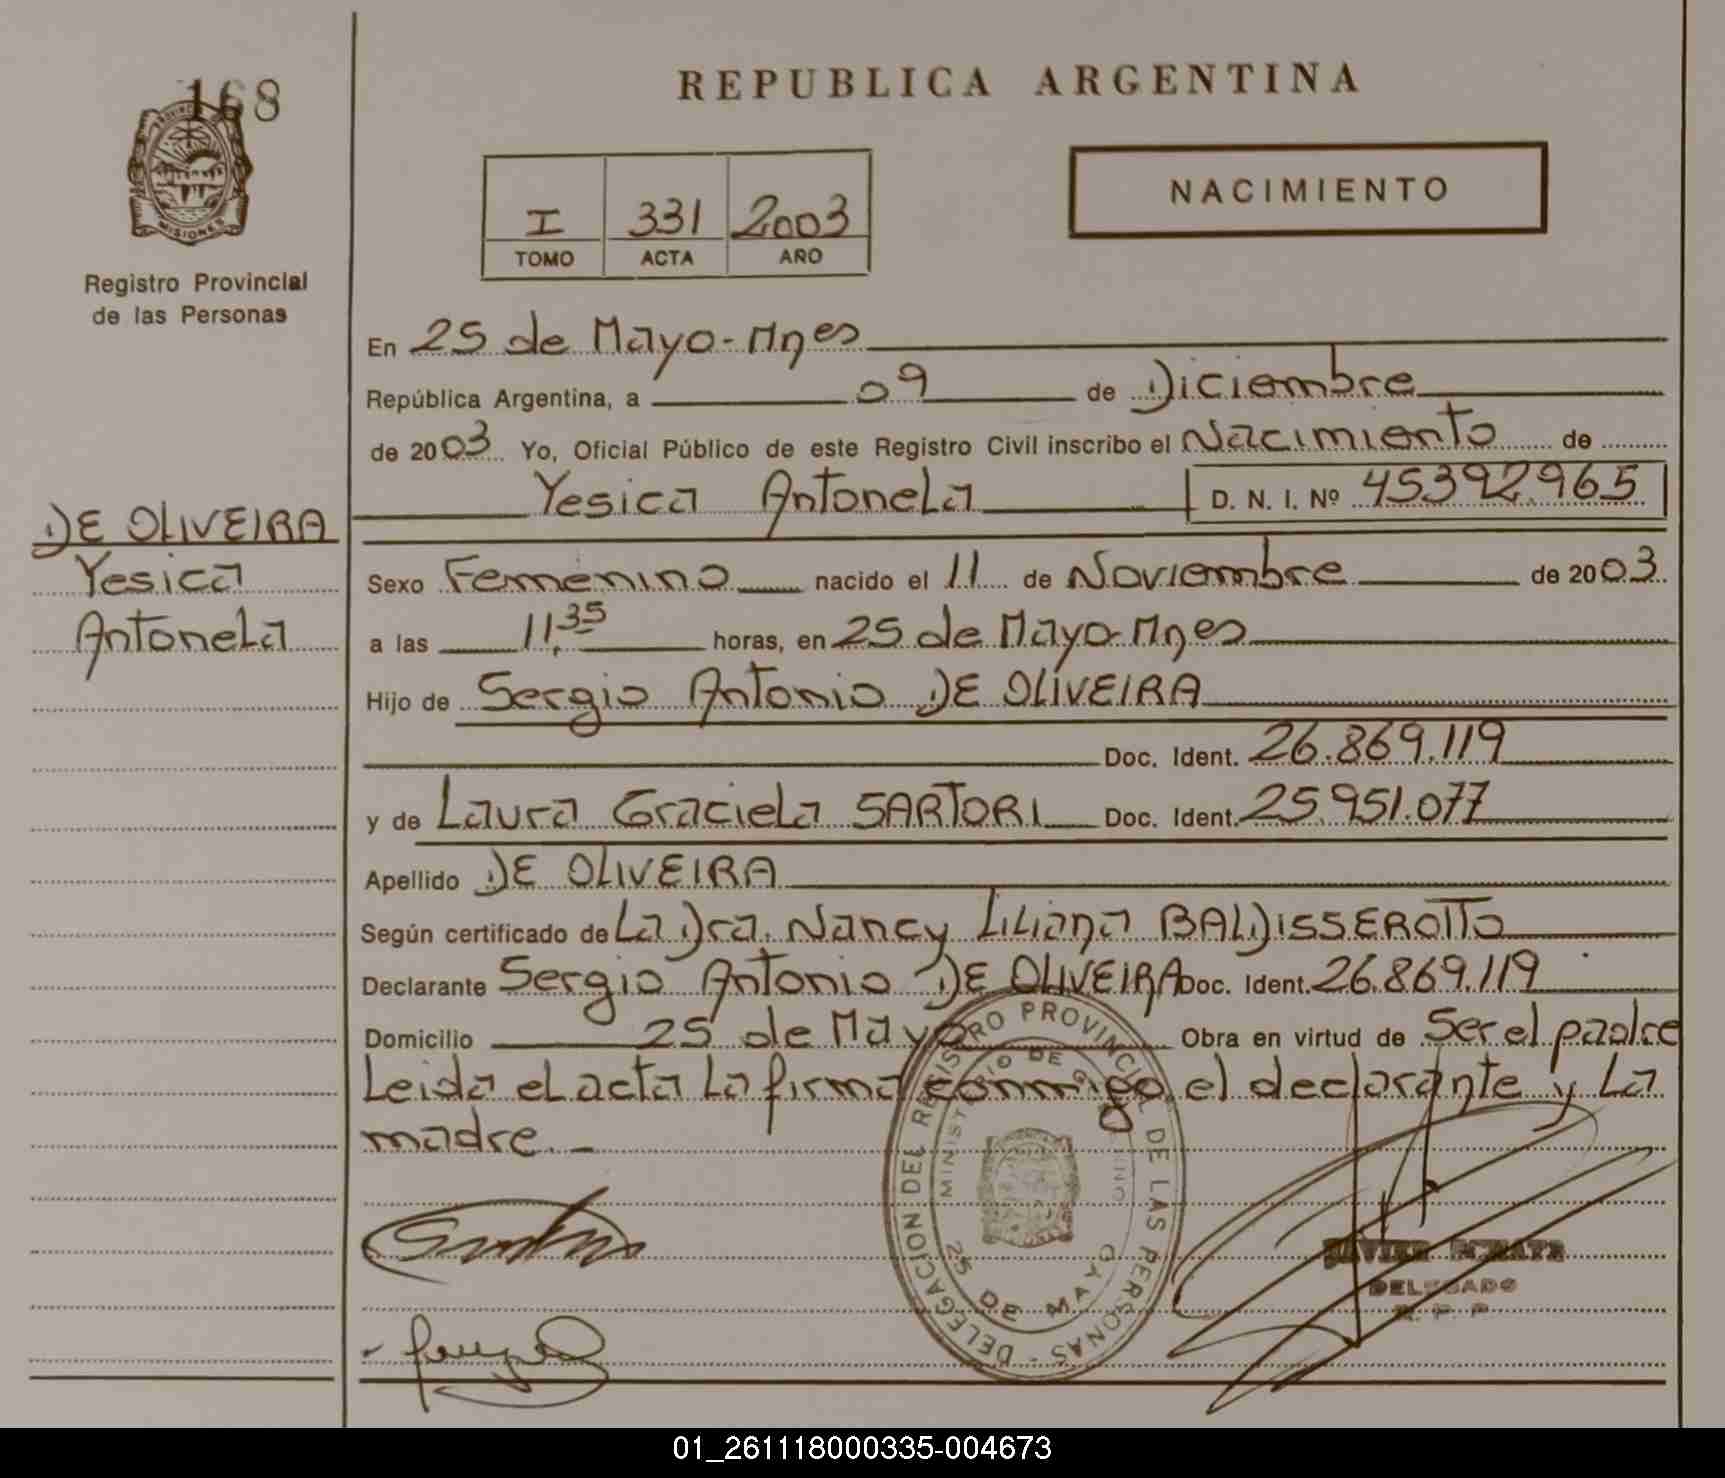 168
PROVINCIA
MISIONES
Registro Provincial
de las Personas
DE OLIVEIRA
Yesica
Antonela
REPUBLICA ARGENTINA
I 331 2003
TOMO ACTA AÑO
NACIMIENTO
En 25 de Mayo-Mnes
República Argentina, a 09 de Diciembre
de 2003 Yo, Oficial Público de este Registro Civil inscribo el Nacimiento de
Yesica Antonela D. N. I. Nº 45392965
Sexo Femenino nacido el 11 de Noviembre de 2003
a las 11,35 horas, en 25 de Mayo-Mnes
Hijo de Sergio Antonio DE OLIVEIRA
Doc. Ident. 26.869.119
y de Laura Graciela SARTORI Doc. Ident. 25.951.077
Apellido DE OLIVEIRA
Según certificado de La Dra. Nancy Liliana BALDISSEROTTO
Declarante Sergio Antonio DE OLIVEIRA Doc. Ident. 26.869.119
Domicilio 25 de Mayo Obra en virtud de Ser el padre
Leida el acta La firma conmigo el declarante y La
madre.-
DELEGACION DEL REGISTRO PROVINCIAL DE LAS PERSONAS -
MINISTERIO DE GOBIERNO
25 DE MAYO
JAVIER
DELEGADO
R. P. P.
01_261118000335-004673